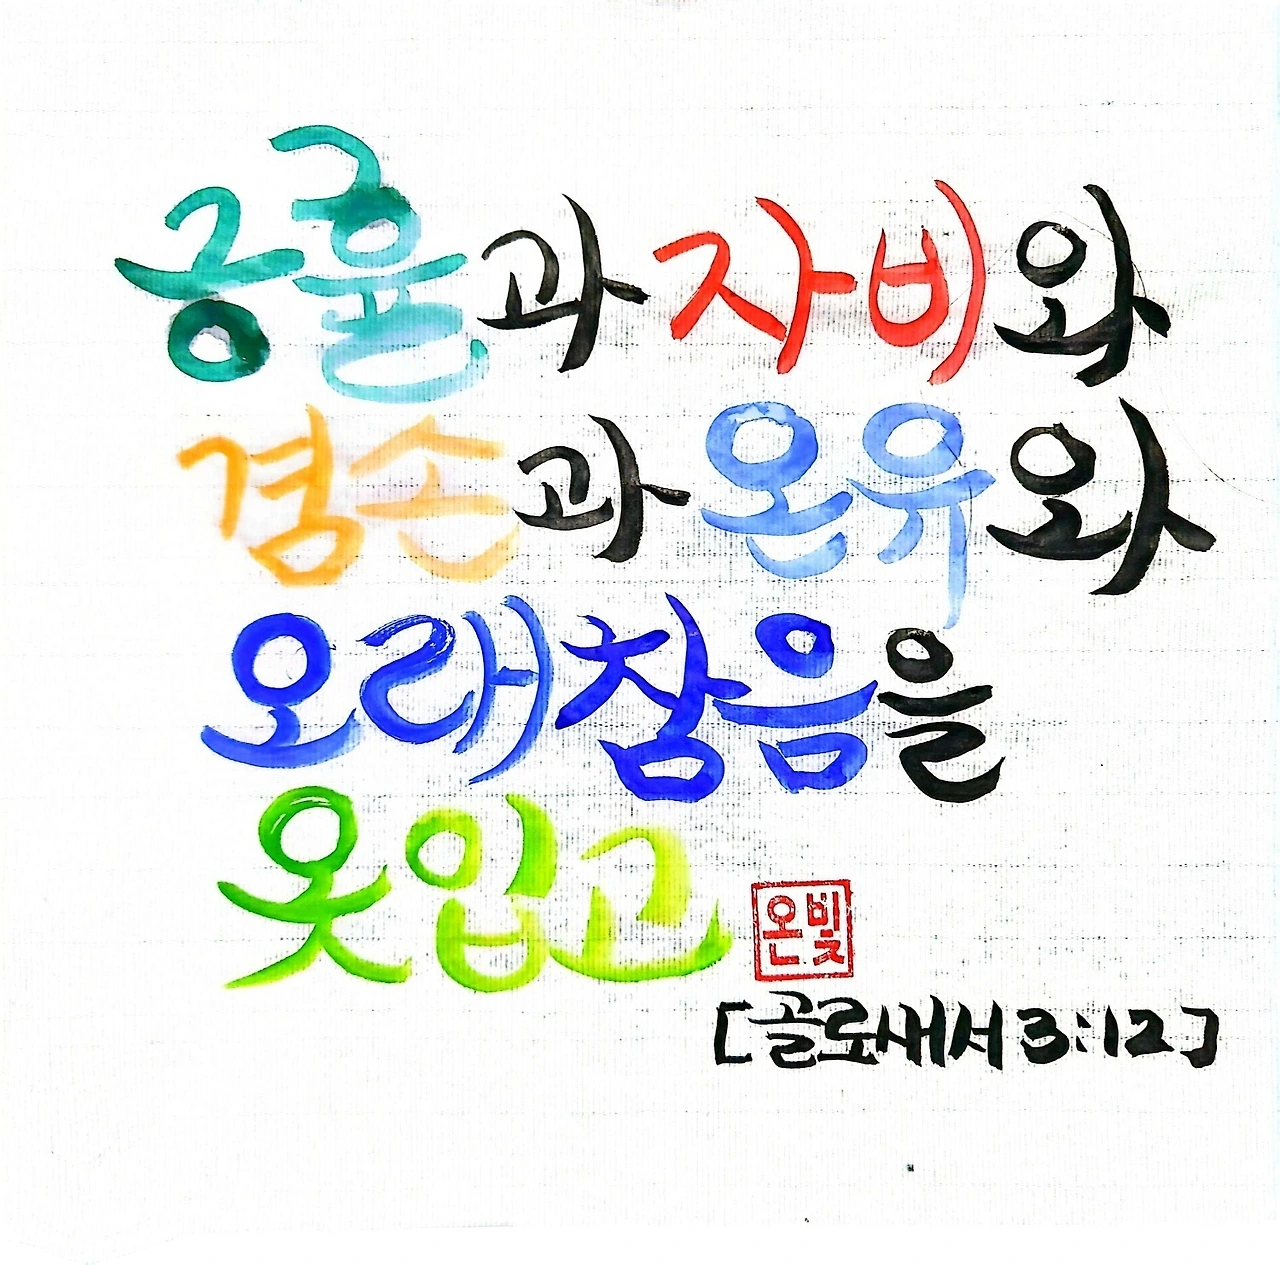 긍휼과 자비와
겸손과 온유와
오래참음을
옷입고
온빛
[골로새서 3:12]